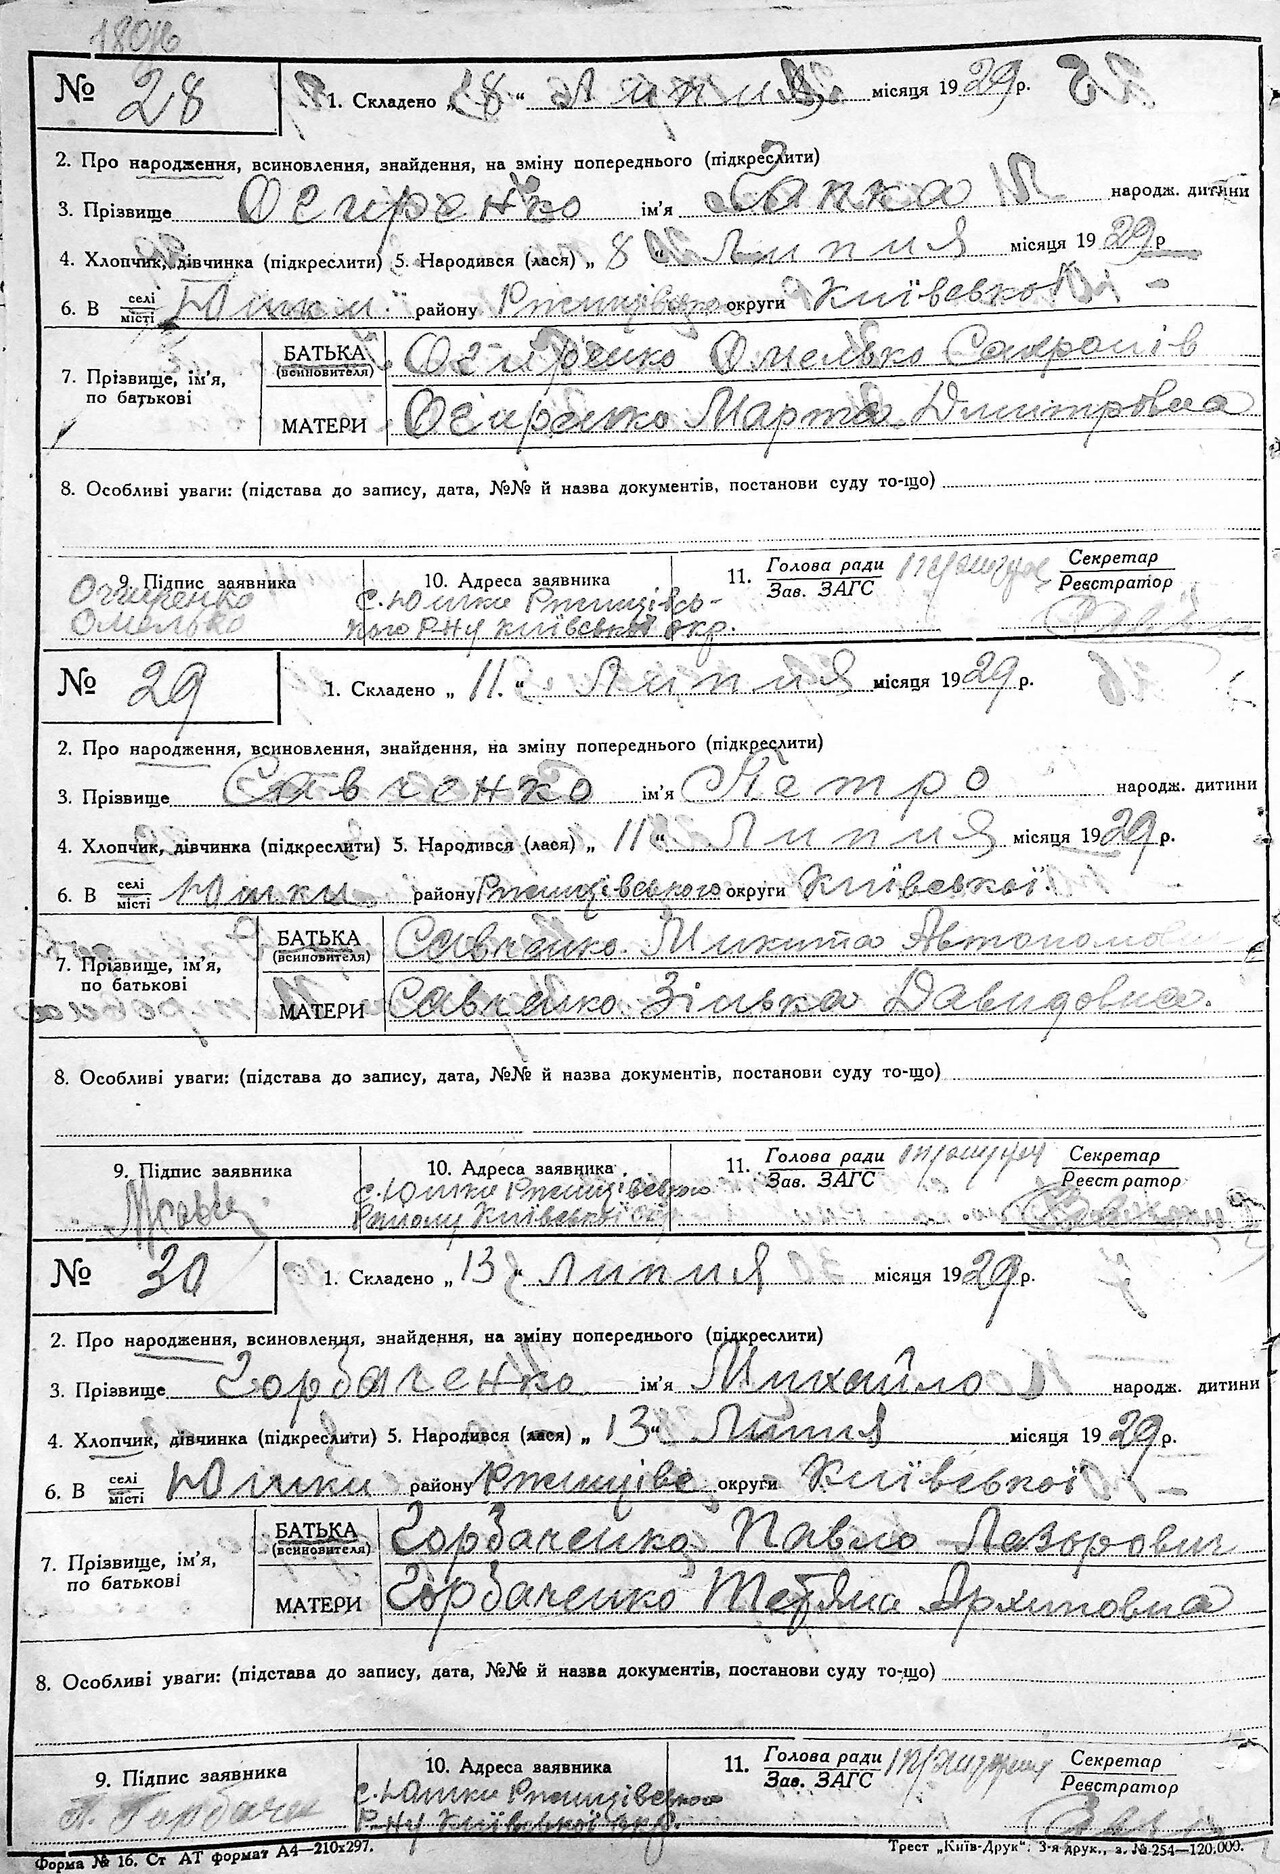 180
№ 28 1. Складено „ 8 “ Липня місяця 1929 р.
2. Про народження, всиновлення, знайдення, на зміну попереднього (підкреслити)
3. Прізвище ім'я Ганка народж. дитини
4. Хлопчик, дівчинка (підкреслити) 5. Народився (лася) „ 8 “ Липня місяця 1929 р
6. В селі місті Юшки району округи Київської
7. Прізвище, ім'я, по батькові БАТЬКА (всиновителя) Омелько
МАТЕРИ Марта Дмитровна
8. Особливі уваги: (підстава до запису, дата, №№ й назва документів, постанови суду то-що)
9. Підпис заявника 10. Адреса заявника 11. Голова ради Зав. ЗАГС Секретар Реєстратор
Омелько с. Юшки Ржищівсь-
кого Р-ну Київської окр.
№ 29 1. Складено „ 11. “ Липня місяця 1929 р.
2. Про народження, всиновлення, знайдення, на зміну попереднього (підкреслити)
3. Прізвище Савченко ім'я Петро народж. дитини
4. Хлопчик, дівчинка (підкреслити) 5. Народився (лася) „ 11 “ Липня місяця 1929 р.
6. В селі місті Юшки району Ржищівського округи Київської
7. Прізвище, ім'я, по батькові БАТЬКА (всиновителя) Савченко Микита
МАТЕРИ Савченко Зінька Давидовна.
8. Особливі уваги: (підстава до запису, дата, №№ й назва документів, постанови суду то-що)
9. Підпис заявника 10. Адреса заявника 11. Голова ради Зав. ЗАГС Секретар Реєстратор
с. Юшки Ржищівського
Району Київської окр
№ 30 1. Складено „ 13 “ Липня місяця 1929 р.
2. Про народження, всиновлення, знайдення, на зміну попереднього (підкреслити)
3. Прізвище Горбаченко ім'я Михайло народж. дитини
4. Хлопчик, дівчинка (підкреслити) 5. Народився (лася) „ 13 “ Липня місяця 1929 р.
6. В селі місті Юшки району Ржищівс округи Київської
7. Прізвище, ім'я, по батькові БАТЬКА (всиновителя) Горбаченко Павло Лазорович
МАТЕРИ Горбаченко Тетяна Архиповна
8. Особливі уваги: (підстава до запису, дата, №№ й назва документів, постанови суду то-що)
9. Підпис заявника 10. Адреса заявника 11. Голова ради Зав. ЗАГС Секретар Реєстратор
П. Горбаче с. Юшки Ржищівського
Р-ну Київської окр.
Форма № 16. Ст АТ формат А4—210х297. Трест „Київ-Друк“. 3-я друк., з. № 254—120.000.